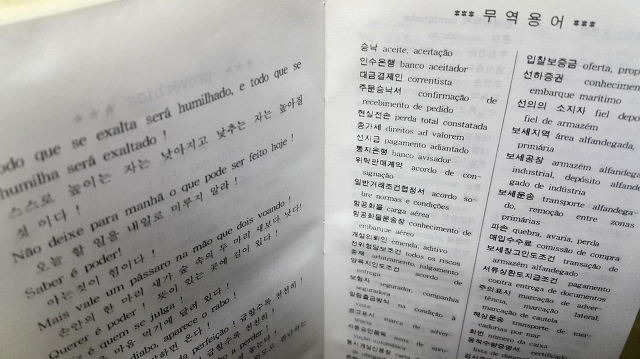 odo que se exalta será humilhado, e todo que se
humilha será exaltado !
스스로 높이는 자는 낮아지고 낮추는 자는 높아질
것 이다 !
Não deixe para manha o que pode ser feito hoje !
오늘 할 일을 내일로 미루지 말라 !
Saber é poder!
아는것이 힘이다 !
Mais vale um pássaro na mão que dois voando !
손안의 한 마리 새가 숲 속의 두 마리 새보다 낫다!
Querer é poder ! 뜻이 있는 곳에 길이 있다 !
é quem se julga !
마음 먹기에 달려 있다 !
diabo, aparece o rabo !
*** 무역용어 ***
승낙 aceite, aceitação
인수은행 banco aceitador
대금결제인 correntista
주문승낙서 confirmação de
recebimento de pedido
현실전손 perda total constatada
종가세 direitos ad valorem
선지급 pagamento adiantado
통지은행 banco avisador
위탁판매계약 acordo de con-
signação
일반거래조건협정서 acordo so-
bre normas e condições
항공화물 carga aérea
항공화물운송장 conhecimento de
embarque aéreo
개설의뢰인 emenda, aditivo
전위험담보조건 todos os riscos
중재 arbitramento, julgamento
양륙지인도조건 acordo de
entrega
보험자 segurador, companhia
seguradora
일람출급방식 na condição à
vista
입찰보증금 oferta, prop
선하증권 conhecimen
embarque marítimo
선의의 소지자 fiel depo
fiel de armazém
보세지역 área alfandegada,
primária
보세공장 armazém alfandega
industrial, depósito alfand
gado de indústria
보세운송 transporte alfandega-
do, remoção entre zonas
primárias
파손 quebra, avaria, perda
매입수수료 comissão de compra
보세창고인도조건 transação de
armazém alfandegado
서류상환도지급조건 pagamento
contra entrega de documentos
주의표시 marcação de adver-
tência, marcação
marcação de cautela
해상운송 transporte de mer-
cadorias por mar
화번 número da caixa